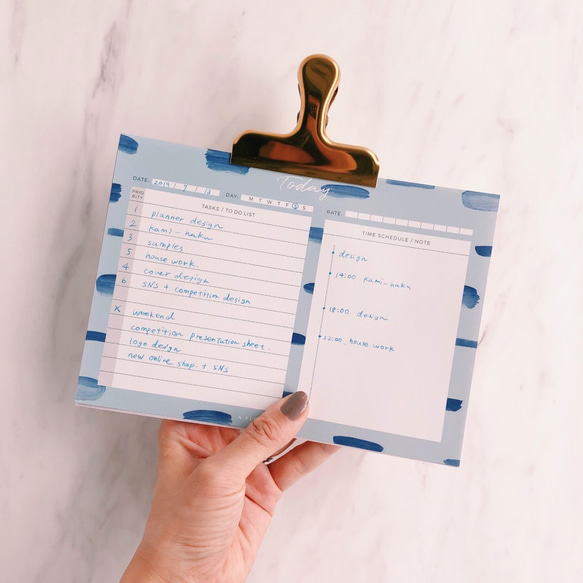 Today
DATE: 2019 / 9 /
DAY: M T W T F S S
RATE:
PRIORITY
TASKS / TO DO LIST
1 planner design
2 kami-haku
3 samples
5 house work
4 cover design
6 SNS + competition design
× weekend
competition presentation sheet.
logo design
new online shop. + SNS
TIME SCHEDULE / NOTE
design
14:00 kami-haku
18:00 design
22:00 house work